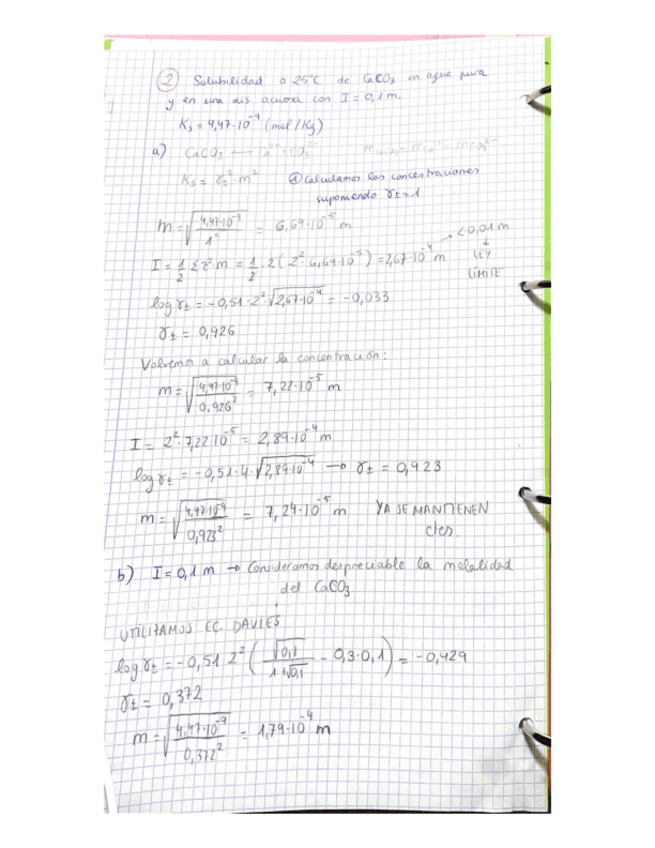 2 Solubilidad a 25°C de CaCO3 en agua pura
y en una dis acuosa con I = 0,1 m.
Ks = 4,47·10^-9 (mol/Kg)
a) CaCO3
Ks = γ±²·m² ① Calculamos las concentraciones
suponiendo γ± = 1
m = √(4,47·10^-9 / 1²) = 6,69·10^-5 m
I = 1/2 Σ z²·m = 1/2 · 2 (2²·6,69·10^-5) = 2,67·10^-4 m → < 0,01 m
↓
LEY
LÍMITE
log γ± = -0,51·2² √(2,67·10^-4) = -0,033
γ± = 0,926
Volvemos a calcular la concentración:
m = √(4,47·10^-9 / 0,926²) = 7,22·10^-5 m
I = 2²·7,22·10^-5 = 2,89·10^-4 m
log γ± = -0,51·4·√(2,89·10^-4) → γ± = 0,923
m = √(4,47·10^-9 / 0,923²) = 7,24·10^-5 m YA SE MANTIENEN
ctes.
b) I = 0,1 m → Consideramos despreciable la molalidad
del CaCO3
UTILIZAMOS EC. DAVIES
log γ± = -0,51 2² (√0,1 / 1+√0,1 - 0,3·0,1) = -0,429
γ± = 0,372
m = √(4,47·10^-9 / 0,372²) = 1,79·10^-4 m